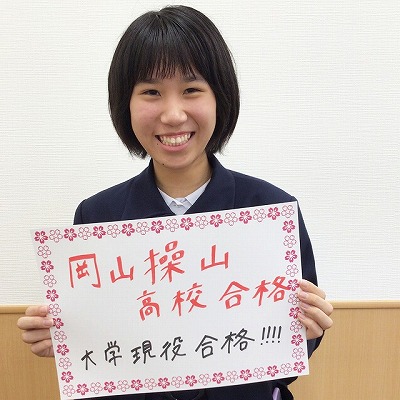 岡山操山
高校合格
大学現役合格!!!!